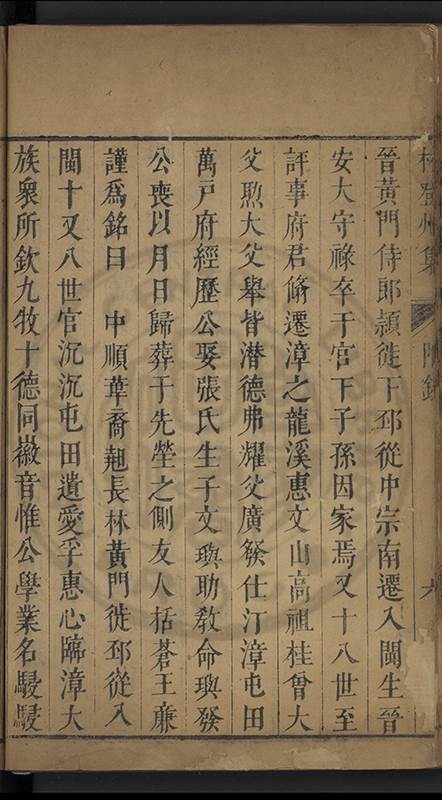 林登州集
附錄
六
晉黃門侍郎頴徙下邳從中宗南遷入閩生晉
安大守祿卒于官下子孫因家焉又十八世至
評事府君脩遷漳之龍溪惠文山高祖桂曾大
父煦大父舉皆潛德弗耀父廣發仕汀漳屯田
萬戸府經歷公娶張氏生子文璵助敎命璵發
公喪以月日歸葬于先塋之側友人括蒼王亷
謹爲銘曰　中順華裔翹長林黃門徙邳從入
閩十又八世官沉沉屯田遺愛孚惠心臨漳大
族衆所欽九牧十德同徽音惟公學業名駸駸